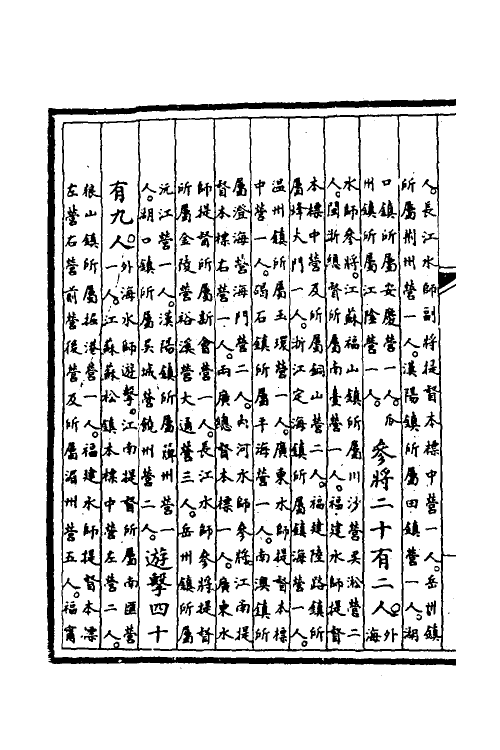 人。長江水師副將提督本標中營一人。岳州鎮
所屬荊州營一人。漢陽鎮所屬田鎮營一人。湖
口鎮所屬安慶營一人。瓜
州鎮所屬江陰營一人。
參將二十有二人。
外
海
水師參將。江蘇福山鎮所屬川沙營吳淞營二
人。閩浙總督所屬南臺營一人。福建水師提督
本標中營及所屬銅山營二人。福建陸路鎮所
屬烽火門一人。浙江定海鎮所屬鎮海營一人。
温州鎮所屬玉環營一人。廣東水師提督本標
中營一人。碣石鎮所屬平海營一人。南澳鎮所
屬澄海營海門營二人。內河水師參將江南提
督本標右營一人。兩廣總督本標一人。廣東水
師提督所屬新會營一人。長江水師參將提督
所屬金陵營裕溪營大通營三人。岳州鎮所屬
沅江營一人。漢陽鎮所屬蘄州營一
人。湖口鎮所屬吳城營饒州營二人。
遊擊四十
有九人。
外海水師遊擊。江南提督所屬南匯營
一人。江蘇蘇松鎮本標中營左營二人。
狼山鎮所屬掘港營一人。福建水師提督本標
左營右營前營後營及所屬湄州營五人。福寧